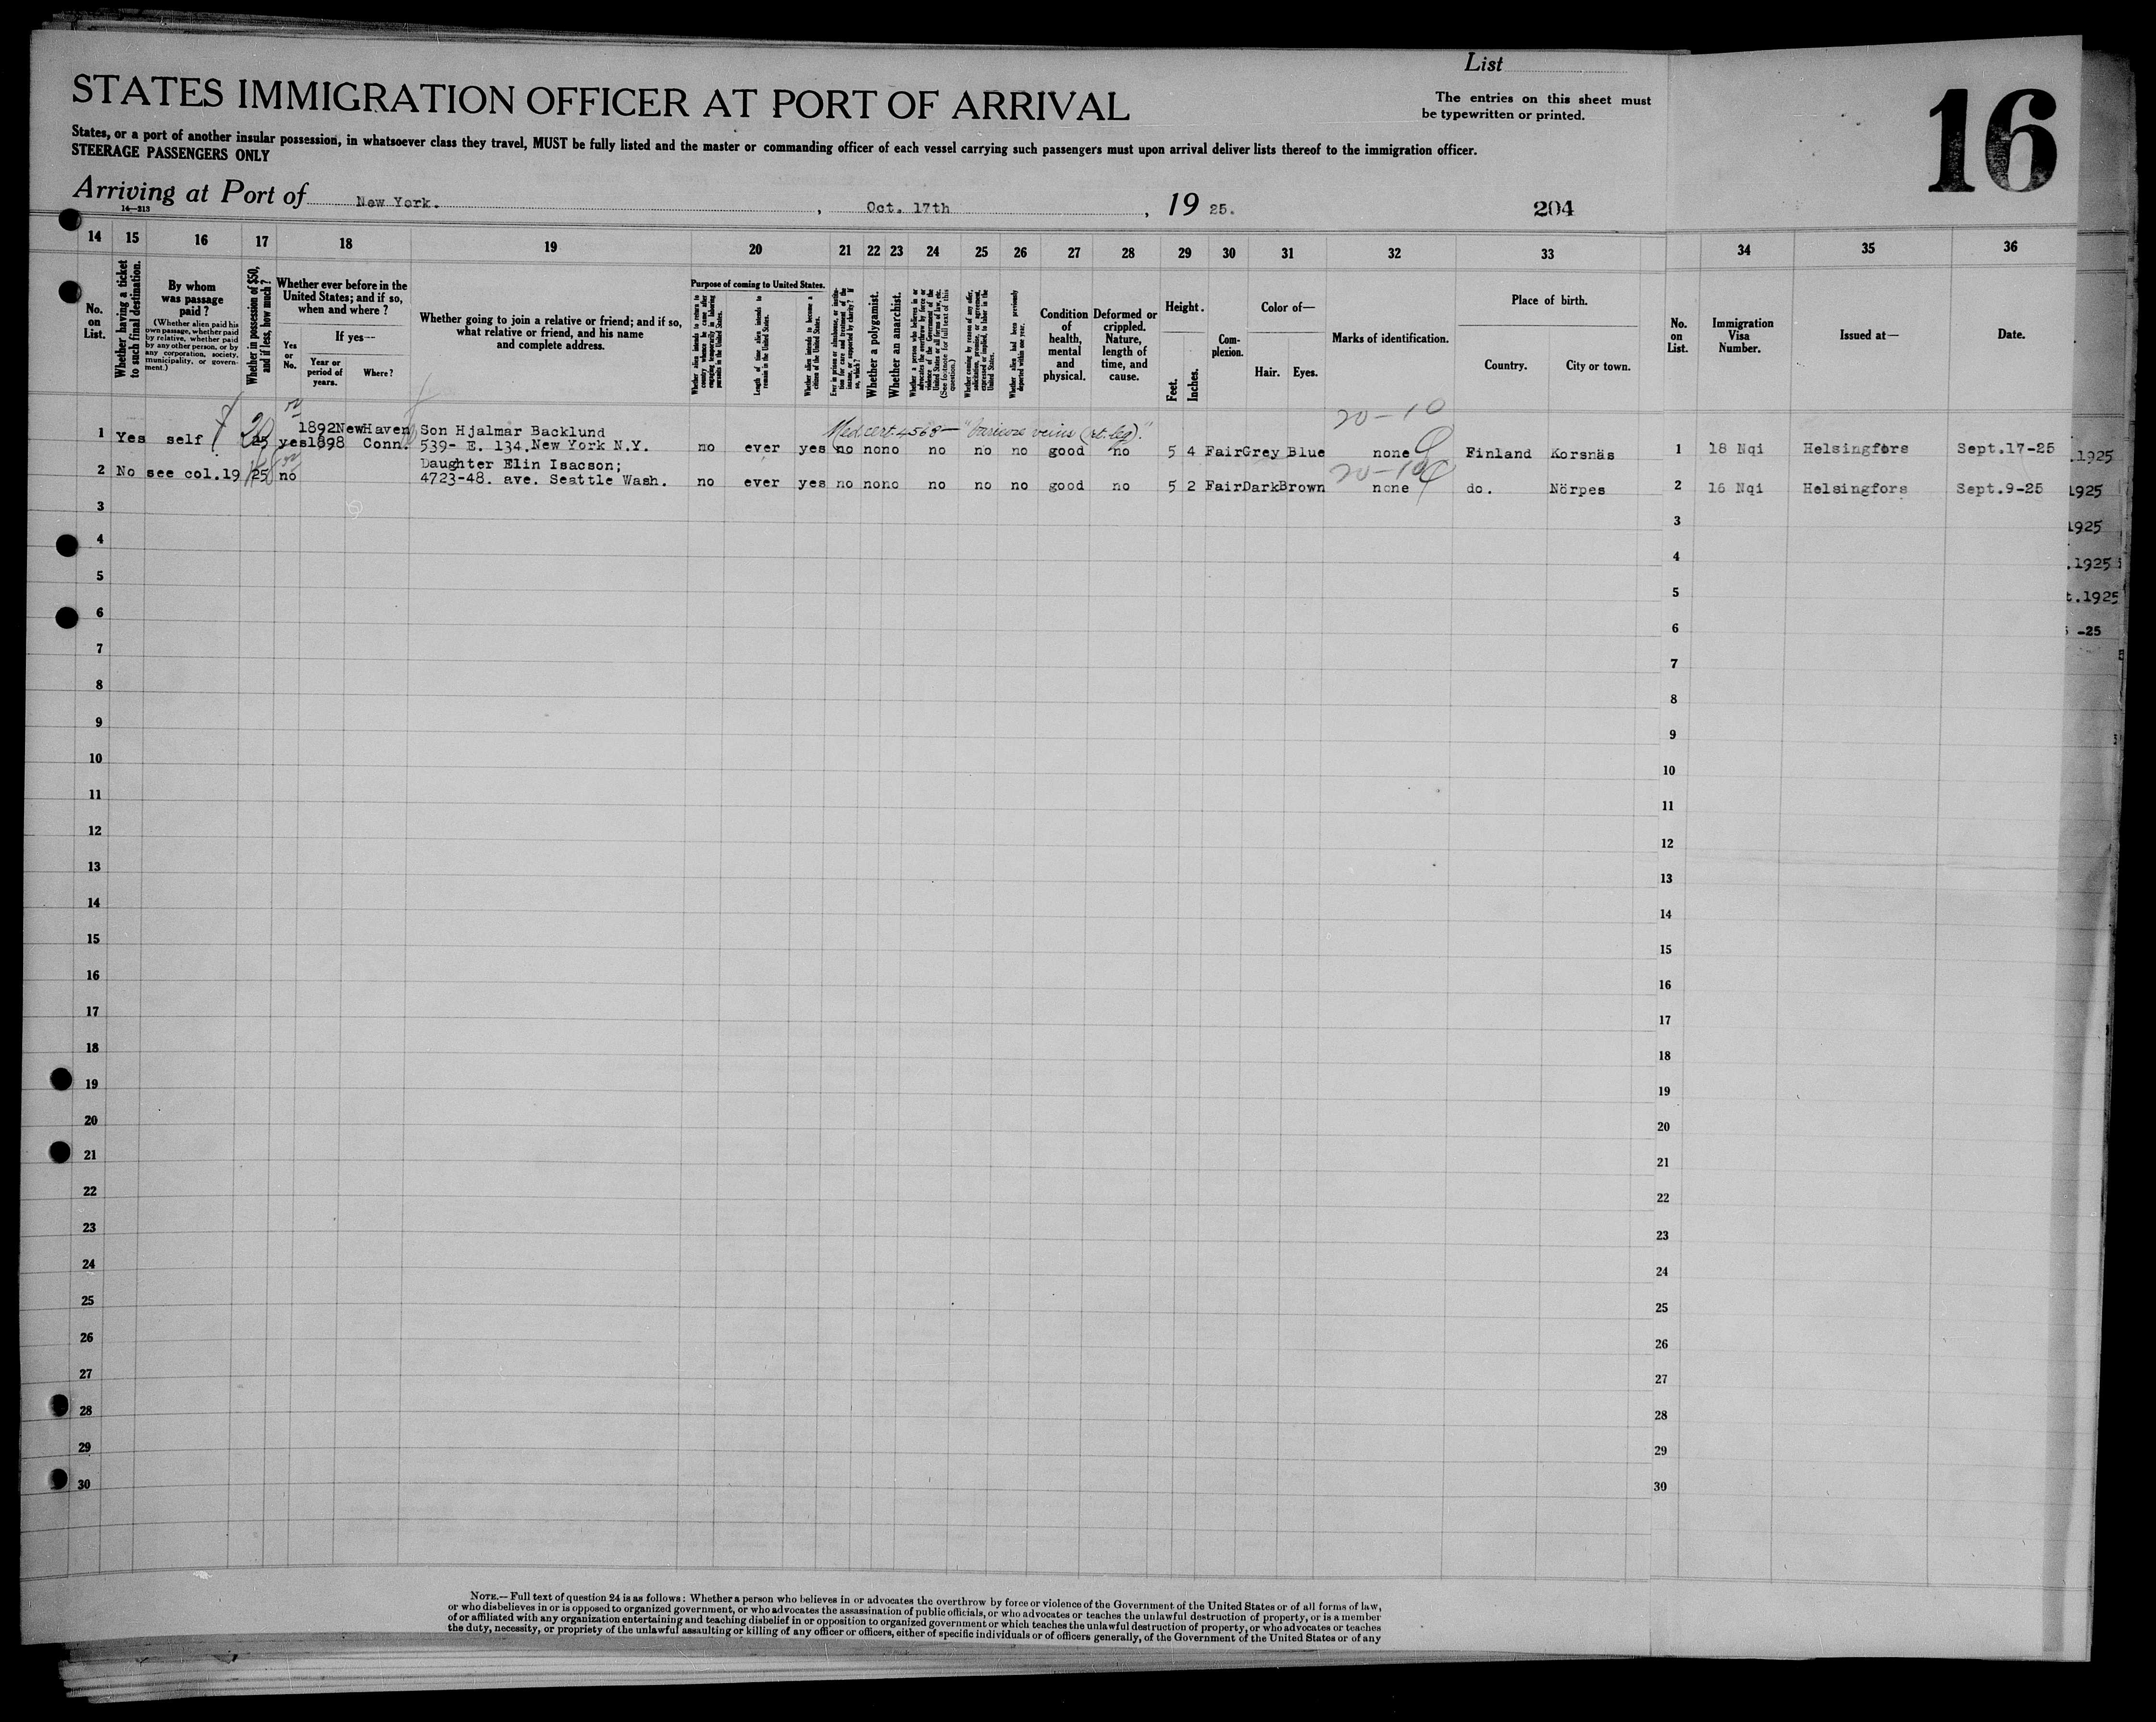 List
STATES IMMIGRATION OFFICER AT PORT OF ARRIVAL
The entries on this sheet must
be typewritten or printed.
16
States, or a port of another insular possession, in whatsoever class they travel, MUST be fully listed and the master or commanding officer of each vessel carrying such passengers must upon arrival deliver lists thereof to the immigration officer.
STEERAGE PASSENGERS ONLY
Arriving at Port of New York. , Oct. 17th , 19 25.
14—213
204
14 15 16 17 18 19 20 21 22 23 24 25 26 27 28 29 30 31 32 33 34 35 36
No. on List.
Whether having a ticket to such final destination.
By whom was passage paid?
(Whether alien paid his own passage, whether paid by relative, whether paid by any other person, or by any corporation, society, municipality, or government.)
Whether in possession of $50, and if less, how much?
Whether ever before in the United States; and if so, when and where?
Yes or No.
If yes—
Year or period of years.
Where?
Whether going to join a relative or friend; and if so, what relative or friend, and his name and complete address.
Purpose of coming to United States.
Whether alien intends to return to country whence he came after engaging temporarily in laboring pursuits in the United States.
Length of time alien intends to remain in the United States.
Whether alien intends to become a citizen of the United States.
Ever in prison or almshouse, or institution for care and treatment of the insane, or supported by charity? If so, which?
Whether a polygamist.
Whether an anarchist.
Whether a person who believes in or advocates the overthrow by force or violence of the Government of the United States or all forms of law, etc. (See footnote for full text of this question.)
Whether coming by reason of any offer, solicitation, promise, or agreement, expressed or implied, to labor in the United States.
Whether alien had been previously deported within one year.
Condition of health, mental and physical.
Deformed or crippled. Nature, length of time, and cause.
Height.
Feet.
Inches.
Complexion.
Color of—
Hair.
Eyes.
Marks of identification.
Place of birth.
Country.
City or town.
No. on List.
Immigration Visa Number.
Issued at—
Date.
20-10
Med. cert. 4568— "Varicose veins (rt. leg)."
1892 New Haven Son Hjalmar Backlund
1 Yes self 20 25 yes 1898 Conn. 539- E. 134. New York N.Y. no ever yes no no no no no no good no 5 4 Fair Grey Blue none Finland Korsnäs 1 18 Nqi Helsingfors Sept.17-25 .1925
20-10
Daughter Elin Isacson;
2 No see col.19 25 no 4723-48. ave. Seattle Wash. no ever yes no no no no no no good no 5 2 Fair Dark Brown none do. Nörpes 2 16 Nqi Helsingfors Sept.9-25 1925
3 3 1925
4 4 .1925
5 5 t.1925
6 6 -25
7 7
8 8
9 9
10 10
11 11
12 12
13 13
14 14
15 15
16 16
17 17
18 18
19 19
20 20
21 21
22 22
23 23
24 24
25 25
26 26
27 27
28 28
29 29
30 30
NOTE.—Full text of question 24 is as follows: Whether a person who believes in or advocates the overthrow by force or violence of the Government of the United States or of all forms of law,
or who disbelieves in or is opposed to organized government, or who advocates the assassination of public officials, or who advocates or teaches the unlawful destruction of property, or is a member
of or affiliated with any organization entertaining and teaching disbelief in or opposition to organized government or which teaches the unlawful destruction of property, or who advocates or teaches
the duty, necessity, or propriety of the unlawful assaulting or killing of any officer or officers, either of specific individuals or of officers generally, of the Government of the United States or of any